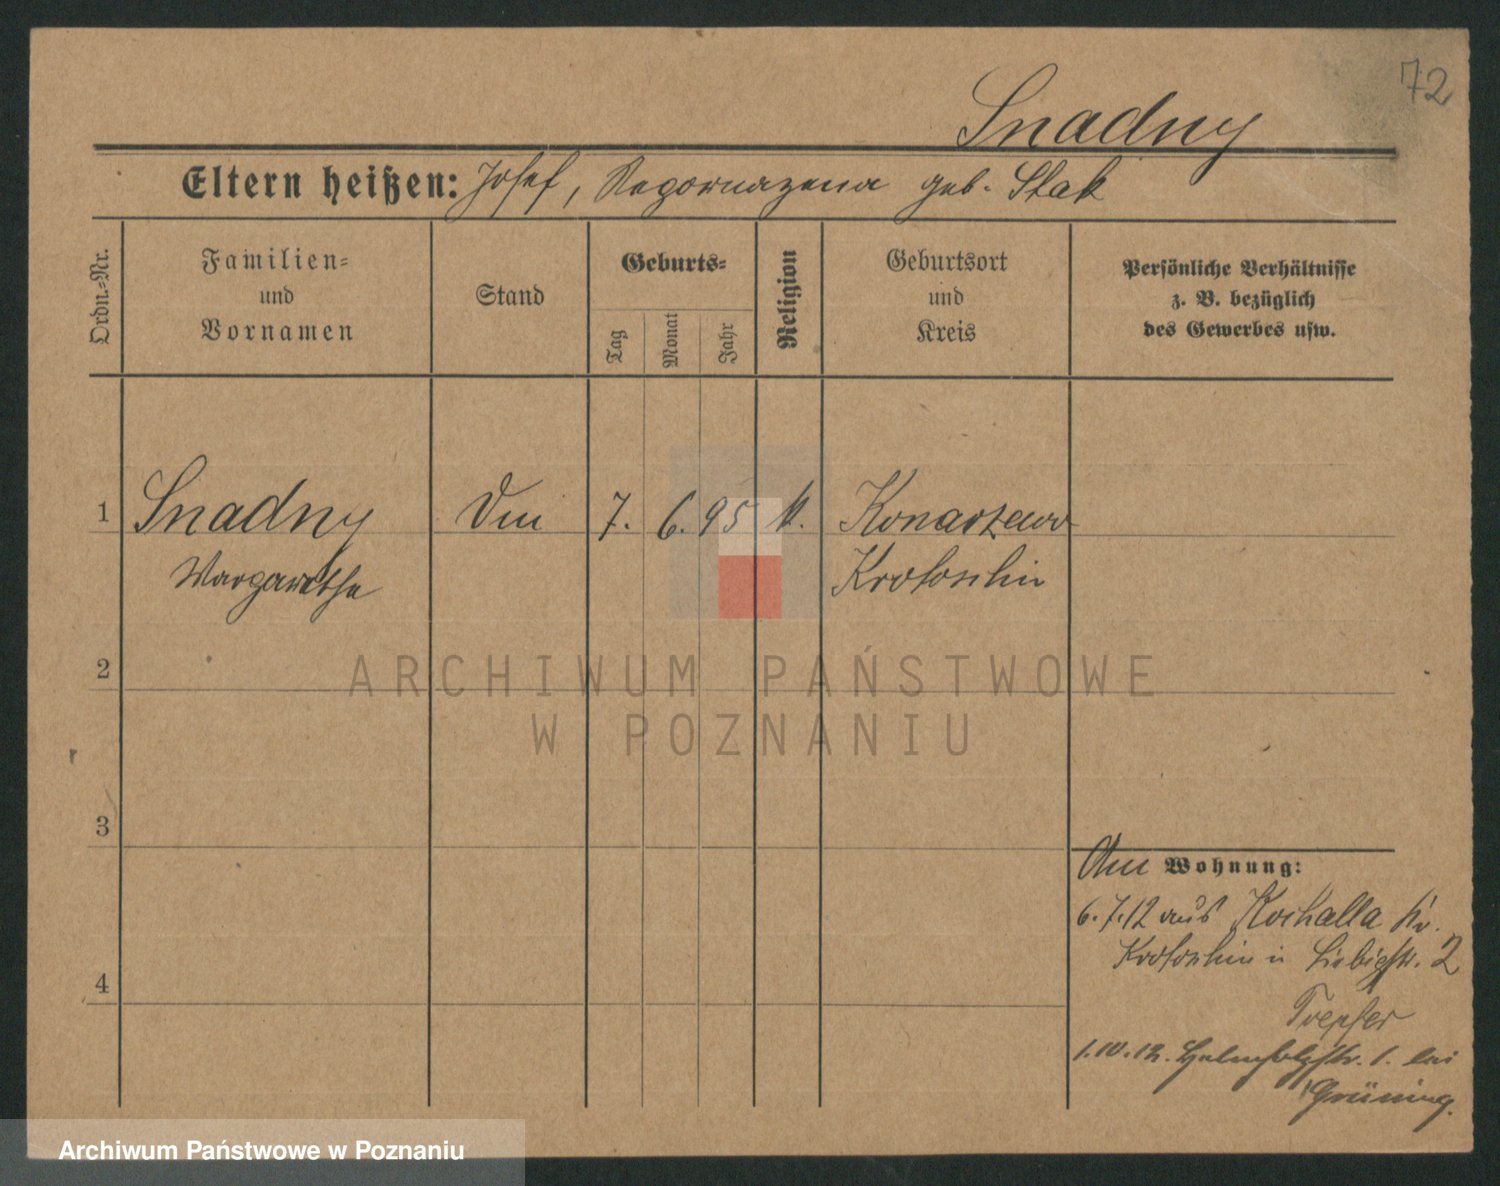 72
Snadny
Eltern heißen: Josef, geb. Stak
Ordn.=Nr.
Familien=
und
Vornamen
Stand
Geburts=
Tag
Monat
Jahr
Religion
Geburtsort
und
Kreis
Persönliche Verhältnisse
z. B. bezüglich
des Gewerbes usw.
1 Snadny 7. 6. 95 k. Konarzewo
Margarethe Krotoschin
2
ARCHIWUM PAŃSTWOWE
W POZNANIU
3
Wohnung:
6.7.12 aus Kochalla Kr.
Krotoschin Liebigstr. 2
4
Toepfer
1.10.12. Helmholtzstr. 1. bei
Grüning.
Archiwum Państwowe w Poznaniu